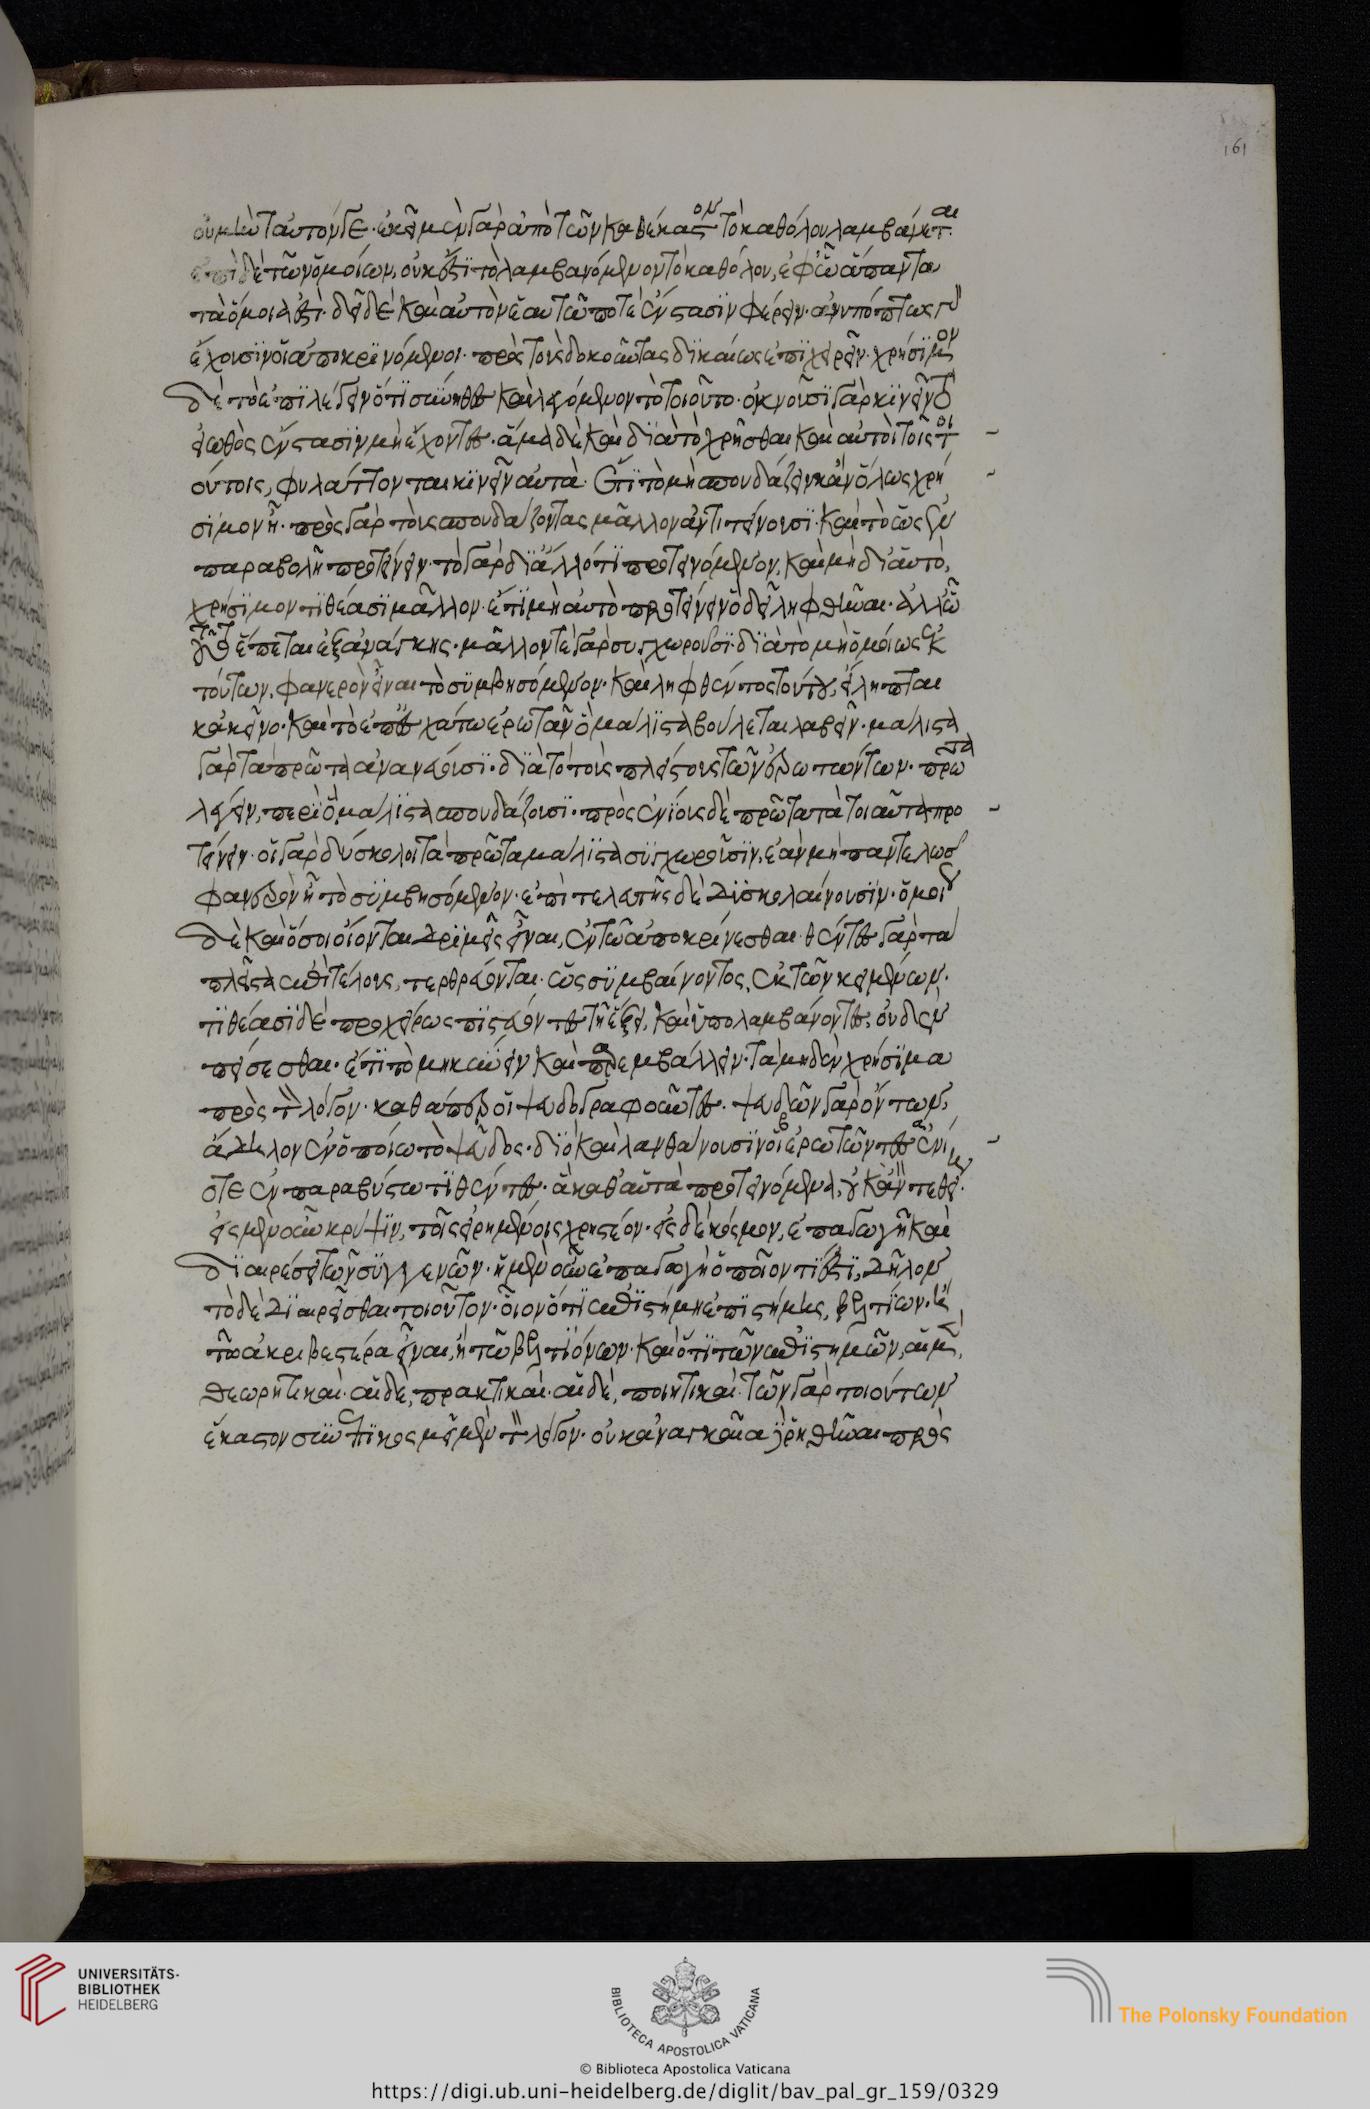 οὐ μὴν ταυτόν γε· ἐκεῖ μὲν γὰρ ἀπὸ τῶν καθέκαστον τὸ καθόλου λαμβάνεται.
ἐπὶ δὲ τῶν ὁμοίων, οὐκ ἔστι τὸ λαμβανόμενον τὸ καθόλου, ἐφ' ὧ ἅπαντα
τὰ ὅμοιά ἐστι· δεῖ δὲ καὶ αὐτὸν ἑαυτῶ ποτὲ ἔνστασιν φέρειν· ἀνυπόπτως γὰρ
ἔχουσιν οἱ ἀποκρινόμενοι. πρὸς τοὺς δοκοῦντας δικαίως ἐπιχειρεῖν· χρήσιμον
δὲ τὸ ἐπιλέγειν ὅτι σύνηθες καὶ λεγόμενον τὸ τοιοῦτο· ὀκνοῦσι γὰρ κινεῖν τὸ
εἰωθὸς ἔνστασιν μὴ ἔχοντες· ἅμα δὲ καὶ διὰ τὸ χρῆσθαι καὶ αὐτοὶ τοῖς τοι
ούτοις, φυλάττονται κινεῖν αὐτά· ἔτι τὸ μὴ σπουδάζειν κἂν ὅλως χρή
σιμον ἦ· πρὸς γὰρ τοὺς σπουδάζοντας μᾶλλον ἀντιτείνουσι· καὶ τὸ ὡς ἐν
παραβολῆ προτείνειν· τὸ γὰρ δι' ἄλλό τι προτεινόμενον, καὶ μὴ δι' αὐτὸ,
χρήσιμον τιθέασι μᾶλλον· ἔτι μὴ αὐτὸ προτείνειν ὃ δεῖ ληφθῆναι· ἀλλ' ὧ
τοῦτο ἕπεται ἐξ ἀνάγκης· μᾶλλόν τε γὰρ συγχωροῦσι· διὰ τὸ μὴ ὁμοίως ἐκ
τούτων, φανερὸν εἶναι τὸ συμβησόμενον· καὶ ληφθέντος τούτου, εἴληπται
κἀκεῖνο· καὶ τὸ ἐπ' ἐσχάτω ἐρωτᾶν ὃ μάλιστα βούλεται λαβεῖν· μάλιστα
γὰρ τὰ πρῶτα ἀνανεύουσι· διὰ τὸ τοὺς πλείστους τῶν ἐρωτώντων· πρῶτα
λέγειν, περὶ ὃ μάλιστα σπουδάζουσι· πρὸς ἐνίους δὲ πρῶτα τὰ τοιαῦτα προ
τείνειν· οἱ γὰρ δύσκολοι τὰ πρῶτα μάλιστα συγχωροῦσιν, ἐὰν μὴ παντελῶς
φανερὸν ἦ τὸ συμβησόμενον· ἐπὶ τελετῆς δὲ δισκολαίνουσιν· ὁμοίως
δὲ καὶ ὅσοι οἴονται δριμεῖς εἶναι, ἐν τῶ ἀποκρίνεσθαι· θέντες γὰρ τὰ
πλεῖστα ἐπὶ τέλους, τερθρεύονται· ὡς συμβαίνοντος, ἐκ τῶν κειμένων·
τιθέασι δὲ προχείρως πιστεύοντες τῆ ἕξει, καὶ ὑπολαμβάνοντες, οὐδὲν
πείσεσθαι· ἔτι τὸ μηκύνειν καὶ παρεμβάλλειν· τὰ μηδὲν χρήσιμα
πρὸς τὸν λόγον· καθάπερ οἱ ψευδογραφοῦντες· ψευδῶν γὰρ ὄντων,
ἄδηλον ἐν ὁποίω τὸ ψεῦδος· διὸ καὶ λανθάνουσιν οἱ ἐρωτῶντες ἐνί
οτε ἐν παραβύστω τιθέντες· ἃ καθ' αὑτὰ προτεινόμενα, οὐκ ἂν τεθεί·
εἰς μὲν οὖν κρύψιν, τοῖς εἰρημένοις χρηστέον· εἰς δὲ κόσμον, ἐπαγωγῆ καὶ
διαιρέσει τῶν συγγενῶν· ἡ μὲν οὖν ἐπαγωγὴ ὁποῖόν τι ἐστὶ, δῆλον
τὸ δὲ διαιρεῖσθαι τοιοῦτον· οἷον ὅτι ἐπιστήμη ἐπιστήμης, βελτίων· ἢ
τῶ ἀκριβεστέρα εἶναι, ἢ τῶ βελτιόνων· καὶ ὅτι τῶν ἐπιστημῶν, αἱ μὲν,
θεωρητικαί· αἱ δὲ, πρακτικαί· αἱ δὲ, ποιητικαί· τῶν γὰρ τοιούτων
ἕκαστον συνεπικοσμεῖ μὲν τὸν λόγον· οὐκ ἀναγκαῖα ῥηθῆναι πρὸς
161
UNIVERSITÄTS-
BIBLIOTHEK
HEIDELBERG
BIBLIOTECA APOSTOLICA VATICANA
The Polonsky Foundation
© Biblioteca Apostolica Vaticana
https://digi.ub.uni-heidelberg.de/diglit/bav_pal_gr_159/0329